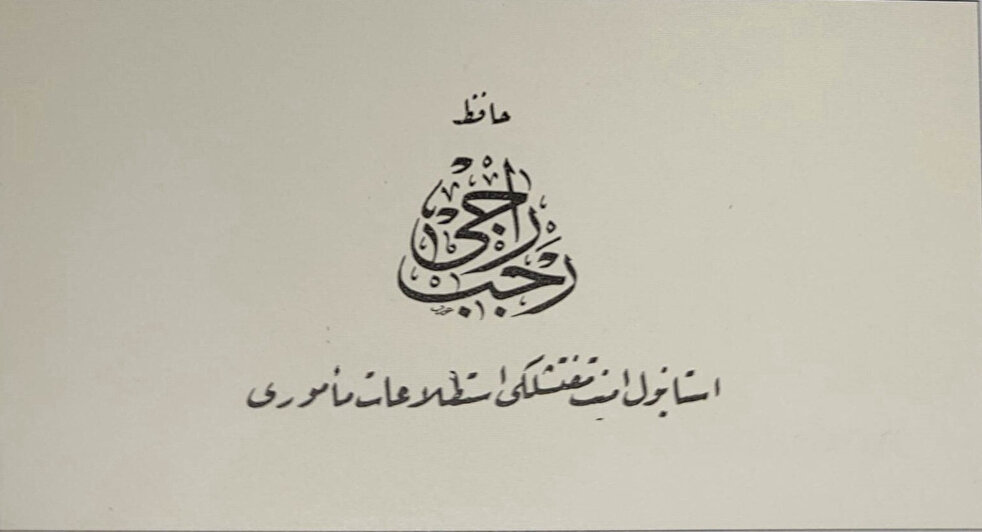 حافظ
راجی
رجب
استانبول امنیت مفتشلكی استطلاعات مأموری